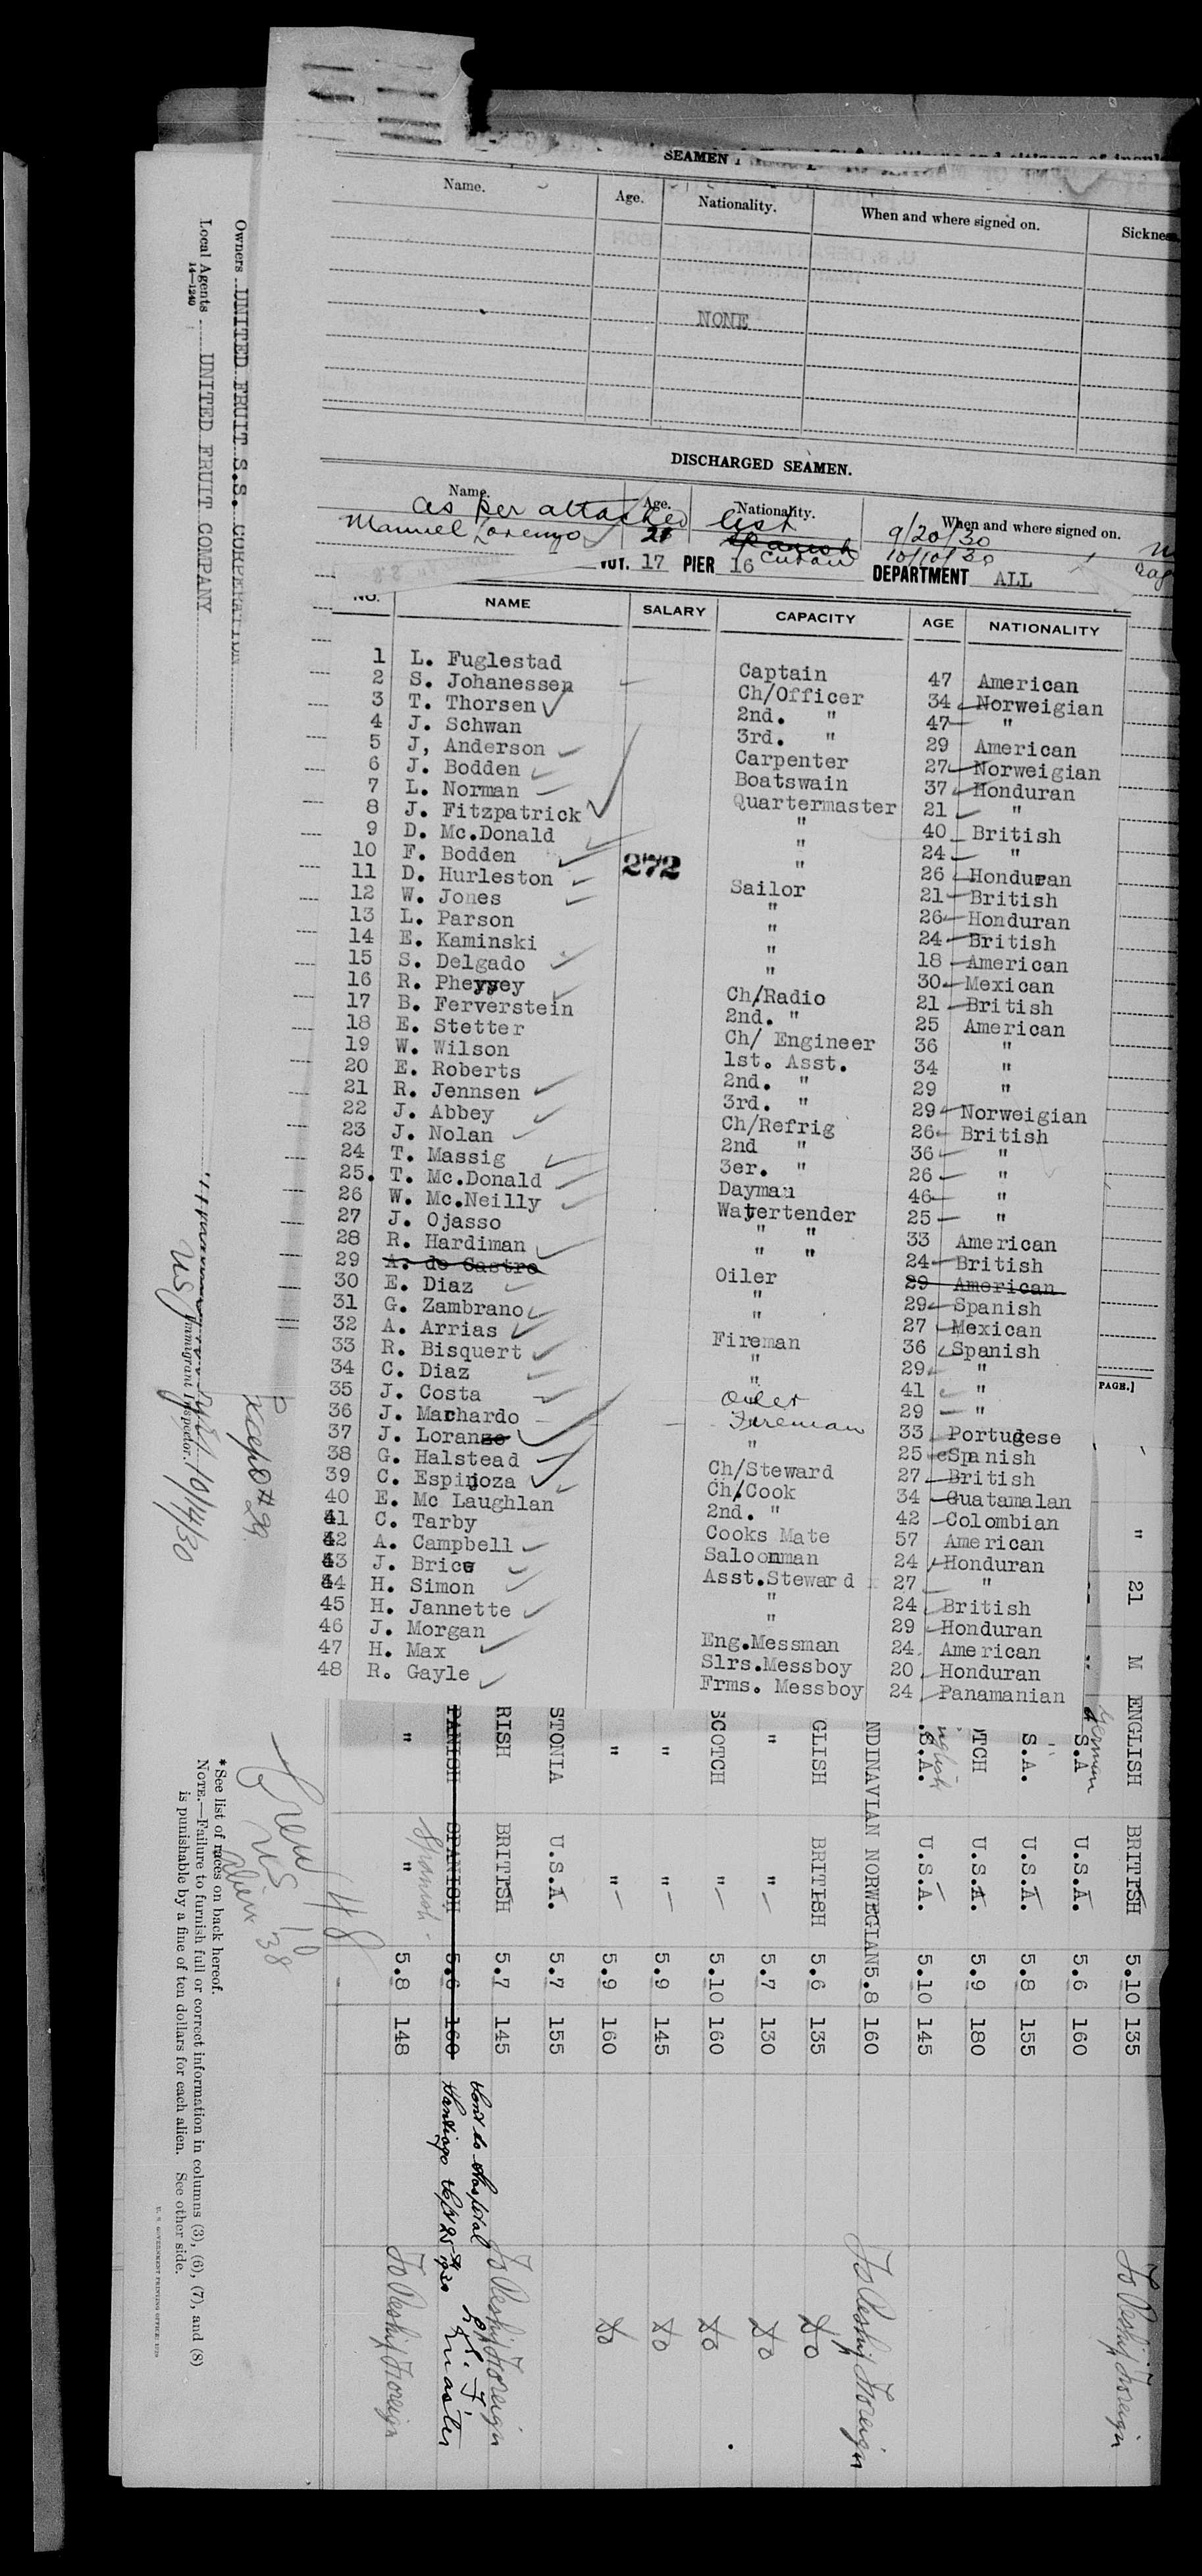 SEAMEN
Name. Age. Nationality. When and where signed on. Sickness
NONE
DISCHARGED SEAMEN.
Name. Age. Nationality. When and where signed on.
as per attached list 9/20/30
Manuel Lorenzo 21 Spanish Cuban 10/10/30
VOY. 17 PIER 16 DEPARTMENT ALL
NO. NAME SALARY CAPACITY AGE NATIONALITY
1 L. Fuglestad Captain 47 American
2 S. Johanessen Ch/Officer 34 Norweigian
3 T. Thorsen 2nd. " 47 "
4 J. Schwan 3rd. " 29 American
5 J, Anderson Carpenter 27 Norweigian
6 J. Bodden Boatswain 37 Honduran
7 L. Norman Quartermaster 21 "
8 J. Fitzpatrick " 40 British
9 D. Mc.Donald " 24 "
10 F. Bodden " 26 Honduran
272
11 D. Hurleston Sailor 21 British
12 W. Jones " 26 Honduran
13 L. Parson " 24 British
14 E. Kaminski " 18 American
15 S. Delgado " 30 Mexican
16 R. Pheysey Ch/Radio 21 British
17 B. Ferverstein 2nd. " 25 American
18 E. Stetter Ch/ Engineer 36 "
19 W. Wilson 1st. Asst. 34 "
20 E. Roberts 2nd. " 29 "
21 R. Jennsen 3rd. " 29 Norweigian
22 J. Abbey Ch/Refrig 26 British
23 J. Nolan 2nd " 36 "
24 T. Massig 3er. " 26 "
25. T. Mc.Donald Dayman 46 "
26 W. Mc.Neilly Watertender 25 "
27 J. Ojasso " " 33 American
28 R. Hardiman " " 24 British
29 A. de Castro Oiler 29 American
30 E. Diaz " 29 Spanish
31 G. Zambrano " 27 Mexican
32 A. Arrias Fireman 36 Spanish
33 R. Bisquert " 29 "
34 C. Diaz " 41 "
35 J. Costa Oiler 29 "
36 J. Machardo Fireman 33 Portugese
37 J. Loranzo " 25 Spanish
38 G. Halstead Ch/Steward 27 British
39 C. Espinoza Ch/Cook 34 Guatamalan
40 E. Mc Laughlan 2nd. " 42 Colombian
41 C. Tarby Cooks Mate 57 American
42 A. Campbell Saloonman 24 Honduran
43 J. Brice Asst.Steward 27 "
44 H. Simon " 24 British
45 H. Jannette " 29 Honduran
46 J. Morgan Eng.Messman 24 American
47 H. Max Slrs.Messboy 20 Honduran
48 R. Gayle Frms. Messboy 24 Panamanian
PAGE.]
" 21 M ENGLISH BRITISH 5.10 135 To Reship Foreign
German S.A U.S.A. 5.6 160
S.A. U.S.A. 5.8 155
TCH U.S.A. 5.9 180
English .S.A. U.S.A. 5.10 145
NDINAVIAN NORWEGIAN 5.8 160 To Reship Foreign
GLISH BRITISH 5.6 135 Do
" " 5.7 130 Do
SCOTCH " 5.10 160 Do
" " 5.9 145 Do
" " 5.9 160 Do
STONIA U.S.A. 5.7 155
RISH BRITISH 5.7 145 To Reship Foreign
PANISH SPANISH 5.6 160 Sent to Hospital Santiago Sept 25th 1930 Master
" " Spanish 5.8 148 To Reship Foreign
Owners UNITED FRUIT S.S. CORPERATION
Local Agents UNITED FRUIT COMPANY
14—1240
Except # 29
10/14/30
US Immigrant Inspector.
Crew 48
US 10
alien 38
* See list of races on back hereof.
NOTE.—Failure to furnish full or correct information in columns (3), (6), (7), and (8)
is punishable by a fine of ten dollars for each alien. See other side.
U. S. GOVERNMENT PRINTING OFFICE: 1929